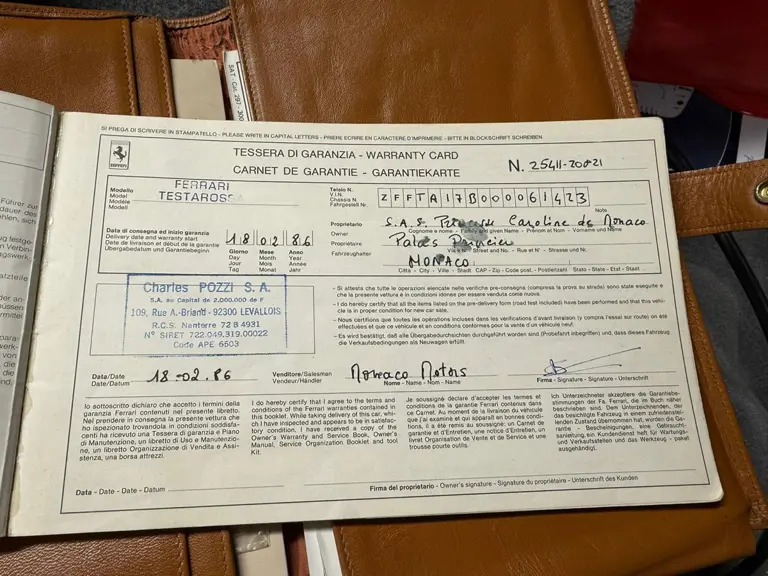 SAT - Circ. 297 - 300
SI PREGA DI SCRIVERE IN STAMPATELLO - PLEASE WRITE IN CAPITAL LETTERS - PRIERE ECRIRE EN CARACTERE D'IMPRIMERIE - BITTE IN BLOCKSCHRIFT SCHREIBEN
TESSERA DI GARANZIA - WARRANTY CARD
CARNET DE GARANTIE - GARANTIEKARTE
N. 25411-20821
Ferrari
Modello
Model
Modèle
Modell
FERRARI
TESTAROSS
Telaio N.
V.I.N.
Chassis N.
Fahrgestell Nr.
ZFFTA17B000061423
Note
Data di consegna ed inizio garanzia
Delivery date and warranty start
Date de livraison et début de la garantie
Übergabedatum und Garantiebeginn
18 02 86
Giorno Mese Anno
Day Month Year
Jour Mois Année
Tag Monat Jahr
Proprietario
Owner
Propriétaire
Fahrzeughalter
S.A.S. Princesse Caroline de Monaco
Cognome e nome - Family and given Name - Prénom et Nom - Vorname und Name
Palais Princier
Via e N° - Street and No. - Rue et N° - Strasse und Nr.
MONACO
Città - City - Ville - Stadt CAP - Zip - Code post. - Postleitzahl Stato - State - Etat - Staat
Charles POZZI S.A.
S.A. au Capital de 2.000.000 de F
109, Rue A.-Briand - 92300 LEVALLOIS
R.C.S. Nanterre 72 B 4931
N° SIRET 722.049.319.00022
Code APE 6503
- Si attesta che tutte le operazioni elencate nelle verifiche pre-consegna (compresa la prova su strada) sono state eseguite e
che la presente vettura è in condizioni idonee per essere venduta come nuova.
- I do hereby certify that all the items listed on the pre-delivery form (road test included) have been performed and that this vehicle
is in proper condition for new car sale.
- Nous certifions que toutes les operations incluses dans les verifications d'avant livraison (y compris l'essai sur route) ont été
effectuées et que ce véhicule et en conditions conformes pour la vente d'un véhicule neuf.
- Es wird bestätigt, daß alle Übergabedurchsichten durchgeführt worden sind (Probefahrt inbegriffen) und, dass dieses Fahrzeug
die Verkaufsbedingungen als Neuwagen erfüllt.
Data/Date
Date/Datum
18-02.86
Venditore/Salesman
Vendeur/Händler
Monaco Motors
Nome - Name - Nom - Name
Firma - Signature - Signature - Unterschrift
Io sottoscritto dichiaro che accetto i termini della
garanzia Ferrari contenuti nel presente libretto.
Nel prendere in consegna la presente vettura che
ho ispezionato trovandola in condizioni soddisfacenti
ha ricevuto una Tessera di garanzia e Piano
di Manutenzione, un libretto di Uso e Manutenzione,
un libretto Organizzazione di Vendita e Assistenza,
una borsa attrezzi.
I do hereby certify that I agree to the terms and
conditions of the Ferrari warranties contained in
this booklet. While taking delivery of this car, which
I have inspected and appears to be in satisfactory
condition, I have received a copy of the
Owner's Warranty and Service Book, Owner's
Manual, Service Organization Booklet and tool
Kit.
Je soussigné déclare d'accepter les termes et
conditions de la garantie Ferrari contenus dans
ce Carnet. Au moment de la livraison du véhicule
que j'ai examiné et qui apparaît en bonnes conditions,
il a été remis au soussigné: un Carnet de
garantie et d'Entretien, une notice d'Entretien, un
livret Organisation de Vente et de Service et une
trousse porte outils.
Ich Unterzeichneter akzeptiere die Garantiebestimmungen
der Fa. Ferrari, die im Buch näher
beschrieben sind. Dem Unterzeichnenden, der
das besichtigte Fahrzeug in einem zufriedenstellenden
Zustand übernommen hat, worden die Garantie
- Bescheinigungen, eine Gebrauchsanleitung,
ein Kundendienst heft für Wartungs-
und Verkaufsstellen und das Werkzeug - paket
ausgehändigt.
Data - Date - Date - Datum
Firma del proprietario - Owner's signature - Signature du propriétaire - Unterschrift des Kunden